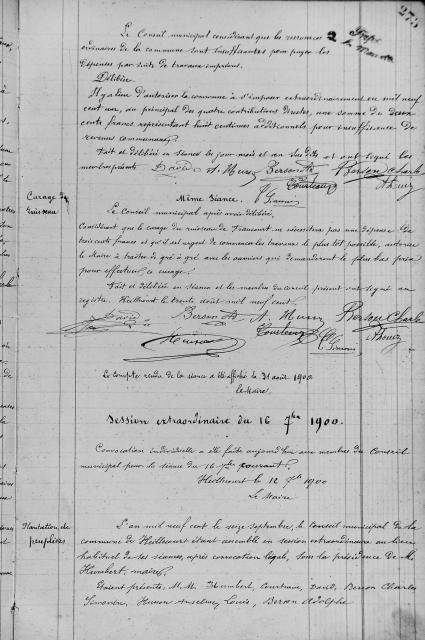 273
Le Conseil municipal considérant que les ressources
ordinaires de la commune sont insuffisantes pour payer les
dépenses par suite de travaux imprévus.
Délibère
Il y a lieu d'autoriser la commune à s'imposer extraordinairement en mil neuf
cent un, au principal des quatre contributions directes, une somme de deux
cents francs représentant huit centimes additionnels pour insuffisance de
revenus communaux.
Fait et délibéré en séance les jour, mois et an susdits et ont signé les
membres présents David A. Husson Berson Ad Berson Charles
Courteaux
Même Séance.
Curage du
ruisseau
Le Conseil municipal après avoir délibéré,
Considérant que le curage du ruisseau de ne nécessitera pas une dépense de
trois cents francs et qu'il est urgent de commencer les travaux le plus tôt possible, autorise
le Maire à traiter de gré à gré avec les ouvriers qui demanderont le plus bas prix
pour effectuer ce curage.
Fait et délibéré en séance et les membres du conseil présents ont signé au
registre. Heillecourt le trente août mil neuf cent.
David Berson Ad A. Husson Berson Charles
Courteaux
Le compte rendu de la séance a été affiché le 31 août 1900
Le Maire,
Session extraordinaire du 16 7bre 1900.
Convocation individuelle a été faite aujourd'hui aux membres du Conseil
municipal pour la séance du 16 7bre courant.
Heillecourt le 12 7bre 1900
Le Maire
Plantation de
peupliers
L'an mil neuf cent le seize septembre, le Conseil municipal de la
commune de Heillecourt étant assemblé en session extraordinaire au lieu
habituel de ses séances, après convocation légale, sous la présidence de M.
Humbert, maire.
Étaient présents, M.M. Humbert, Courteaux, David, Berson Charles
Husson Anselme, Louis, Berson Adolphe